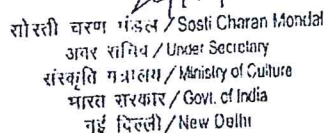 सोस्ती चरण मंडल / Sosti Charan Mondal
अवर सचिव / Under Secretary
संस्कृति मंत्रालय / Ministry of Culture
भारत सरकार / Govt. of India
नई दिल्ली / New Delhi